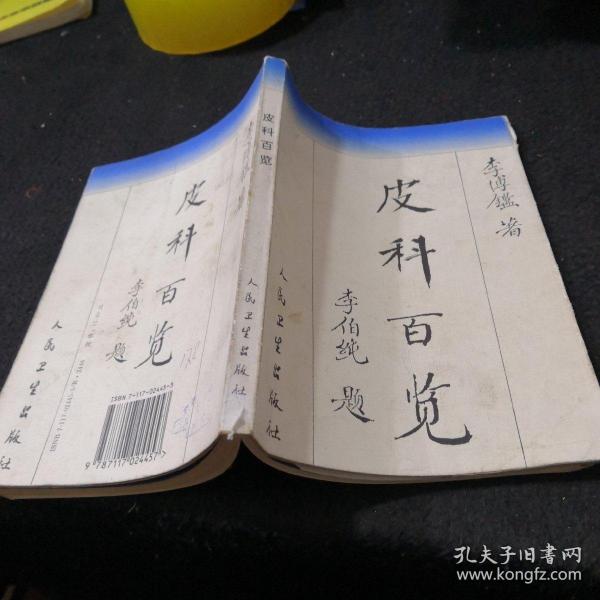 李博鑑 著
皮科百览
李伯纯 题
人民卫生出版社
皮科百览
人民卫生出版社
皮科百览
李伯纯 题
人民卫生出版社
ISBN 7-117-02445-3
9 787117 024457 >
孔夫子旧书网
www.kongfz.com